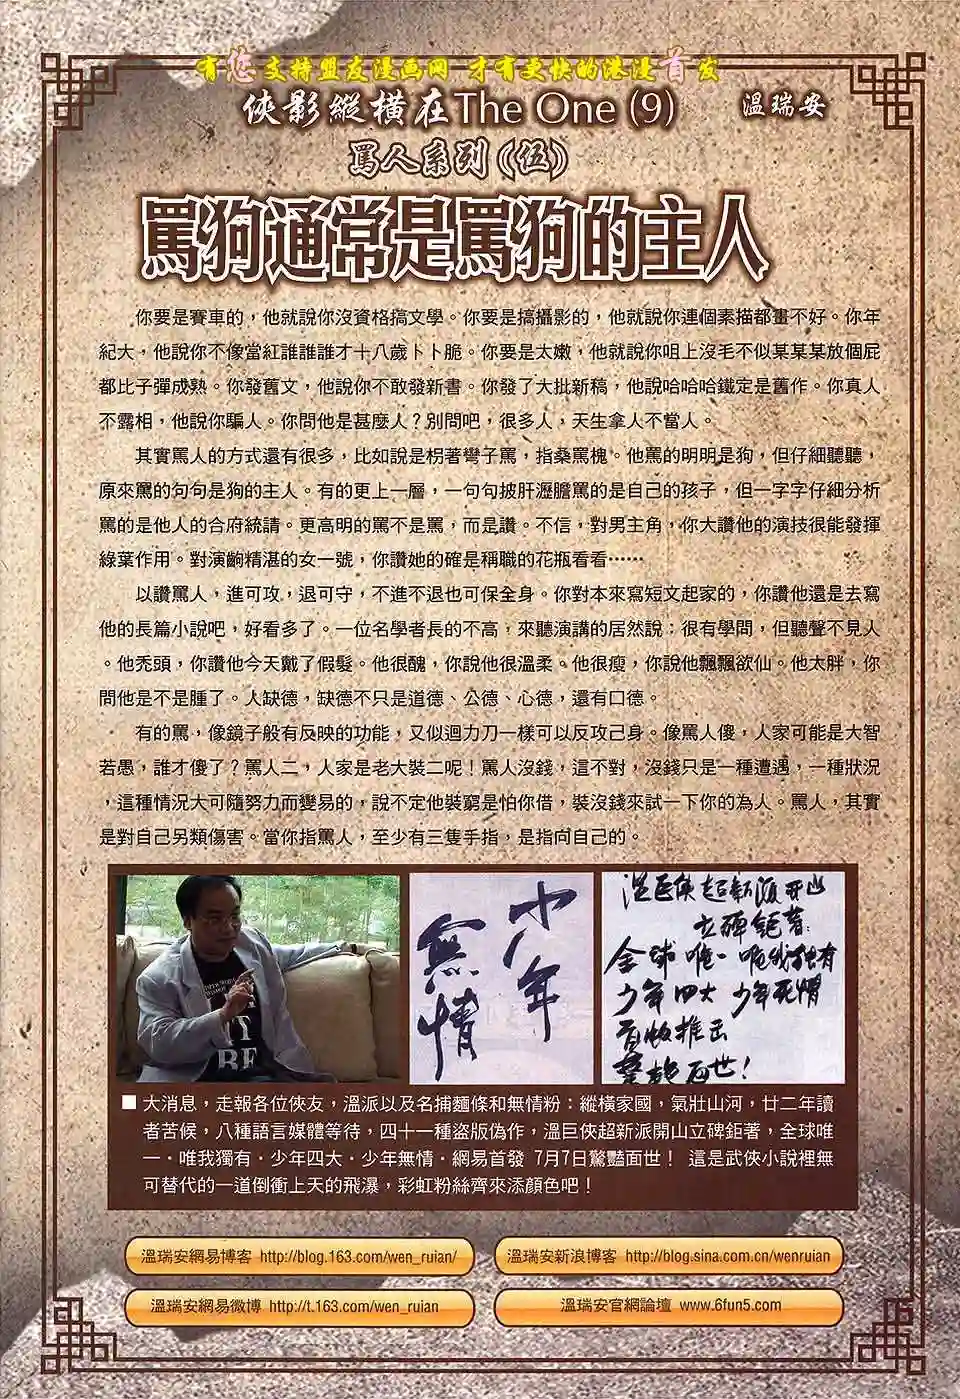 有您支持盟友漫画网 才有更快的港漫首发
俠影縱橫在The One (9) 溫瑞安
罵人系列《伍》
罵狗通常是罵狗的主人
你要是賽車的，他就說你沒資格搞文學。你要是搞攝影的，他就說你連個素描都畫不好。你年
紀大，他說你不像當紅誰誰誰才十八歲卜卜脆。你要是太嫩，他就說你咀上沒毛不似某某某放個屁
都比子彈成熟。你發舊文，他說你不敢發新書。你發了大批新稿，他說哈哈哈鐵定是舊作。你真人
不露相，他說你騙人。你問他是甚麼人？別問吧，很多人，天生拿人不當人。
其實罵人的方式還有很多，比如說是柺著彎子罵，指桑罵槐。他罵的明明是狗，但仔細聽聽，
原來罵的句句是狗的主人。有的更上一層，一句句披肝瀝膽罵的是自己的孩子，但一字字仔細分析
罵的是他人的合府統請。更高明的罵不是罵，而是讚。不信，對男主角，你大讚他的演技很能發揮
綠葉作用。對演齣精湛的女一號，你讚她的確是稱職的花瓶看看⋯⋯
以讚罵人，進可攻，退可守，不進不退也可保全身。你對本來寫短文起家的，你讚他還是去寫
他的長篇小說吧，好看多了。一位名學者長的不高，來聽演講的居然說：很有學問，但聽聲不見人
。他禿頭，你讚他今天戴了假髮。他很醜，你說他很溫柔。他很瘦，你說他飄飄欲仙。他太胖，你
問他是不是腫了。人缺德，缺德不只是道德、公德、心德，還有口德。
有的罵，像鏡子般有反映的功能，又似迴力刀一樣可以反攻己身。像罵人傻，人家可能是大智
若愚，誰才傻了？罵人二，人家是老大裝二呢！罵人沒錢，這不對，沒錢只是一種遭遇，一種狀況
，這種情況大可隨努力而變易的，說不定他裝窮是怕你借，裝沒錢來試一下你的為人。罵人，其實
是對自己另類傷害。當你指罵人，至少有三隻手指，是指向自己的。
少年
無情
溫巨俠超新派開山
立碑鉅著：
全球唯一 唯我獨有
少年四大 少年無情
首版推出
驚艷面世！
■ 大消息，走報各位俠友，溫派以及名捕麵條和無情粉：縱橫家國，氣壯山河，廿二年讀
者苦候，八種語言媒體等待，四十一種盜版偽作，溫巨俠超新派開山立碑鉅著，全球唯
一．唯我獨有．少年四大．少年無情．網易首發 7月7日驚豔面世！ 這是武俠小說裡無
可替代的一道倒衝上天的飛瀑，彩虹粉絲齊來添顏色吧！
溫瑞安網易博客 http://blog.163.com/wen_ruian/
溫瑞安新浪博客 http://blog.sina.com.cn/wenruian
溫瑞安網易微博 http://t.163.com/wen_ruian
溫瑞安官網論壇 www.6fun5.com